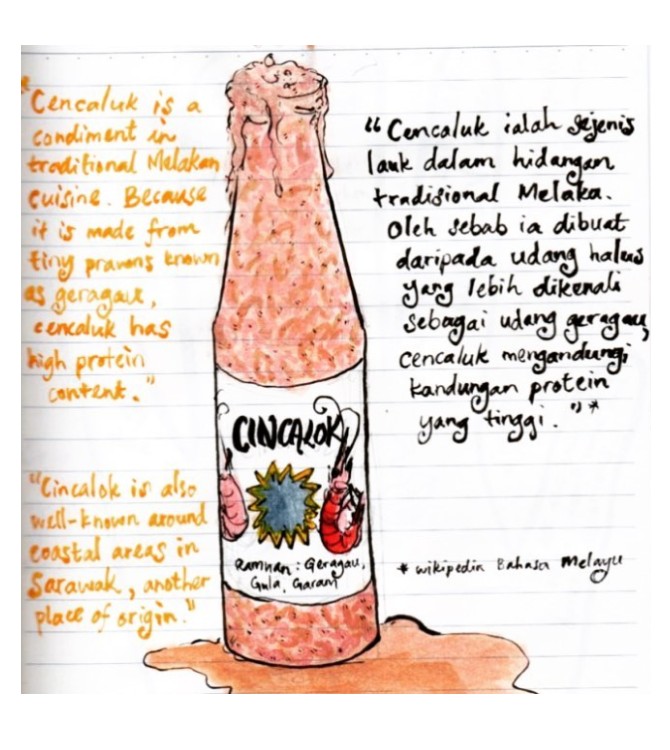 *Cencaluk is a
condiment in
traditional Melakan
cuisine. Because
it is made from
tiny prawns known
as geragau,
cencaluk has
high protein
content."
"Cincalok is also
well-known around
coastal areas in
Sarawak, another
place of origin."
CINCALOK
Ramuan: Geragau,
Gula, Garam
"Cencaluk ialah sejenis
lauk dalam hidangan
tradisional Melaka.
Oleh sebab ia dibuat
daripada udang halus
yang lebih dikenali
sebagai udang geragau,
cencaluk mengandungi
kandungan protein
yang tinggi."*
* wikipedia Bahasa Melayu